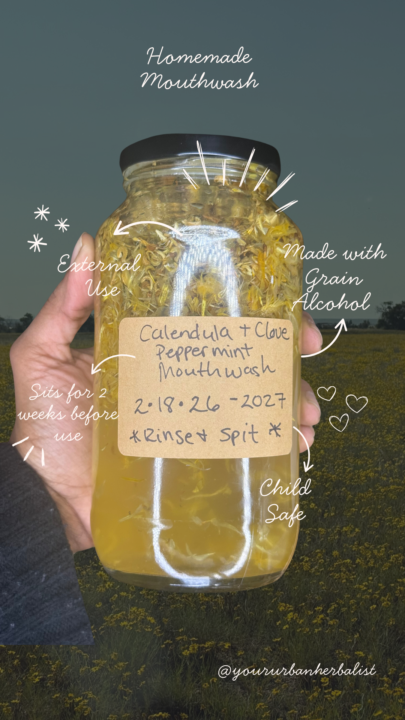 Homemade
Mouthwash
External
Use
Made with
Grain
Alcohol
Calendula + Clove
Peppermint
Mouthwash
2.18.26 - 2027
*Rinse + Spit *
Sits for 2
weeks before
use
Child
Safe
@yoururbanherbalist